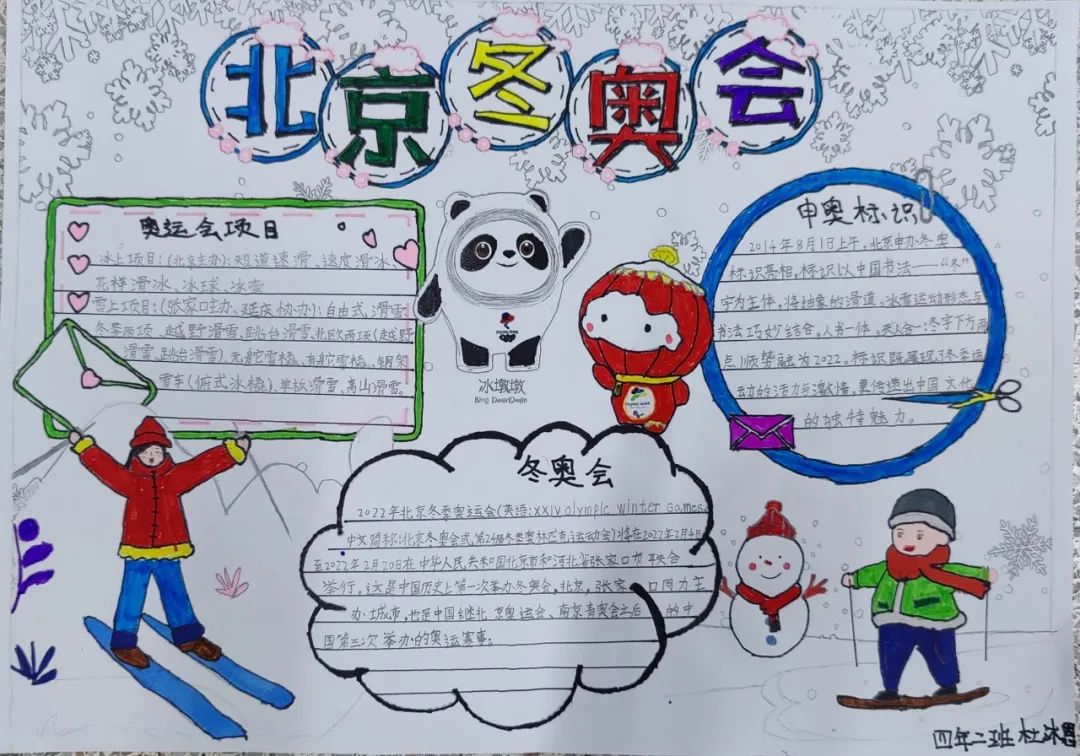 北京冬奥会
奥运会项目
冰上项目:(北京主办):短道速滑、速度滑冰、
花样滑冰、冰球、冰壶
雪上项目:(张家口主办、延庆协办):自由式、滑雪
冬季两项、越野滑雪、跳台滑雪、北欧两项(越野
滑雪、跳台滑雪)、无舵雪橇、有舵雪橇、钢架
雪车(俯式冰橇)、单板滑雪、高山滑雪。
冰墩墩
Bing DwenDwen
申奥标识
2014年8月1日上午,北京申办冬奥
标识亮相,标识以中国书法——“冬”
字为主体,将抽象的滑道、冰雪运动形态与
书法巧妙结合,人书一体,天人合一,冬字下方两
点顺势融为2022。标识既展现了冬季运
动的活力与激情,更传递出中国文化
的独特魅力。
冬奥会
2022年北京冬季奥运会(英语:XXIV olympic winter Games,
中文简称:北京冬奥会或第24届冬季奥林匹克运动会)将在2022年2月4日
至2022年2月20日在中华人民共和国北京市和河北省张家口市联合
举行,这是中国历史上第一次举办冬奥会,北京,张家口同为主
办城市,也是中国继北京奥运会、南京青奥会之后的中
国第三次举办的奥运赛事;
四年二班 杜冰